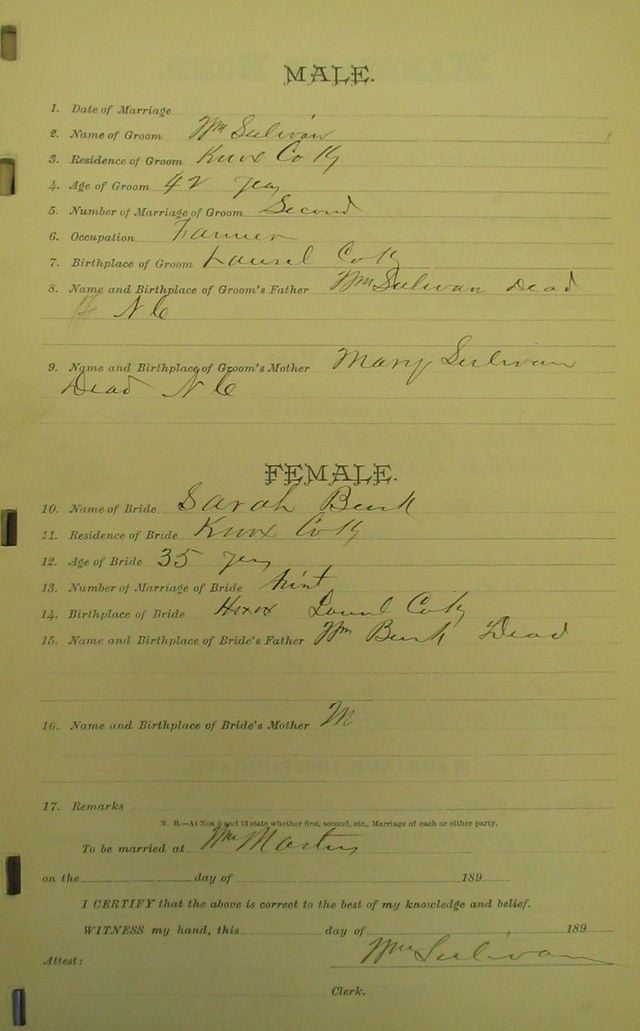 MALE.
1. Date of Marriage
2. Name of Groom Wm Sulivan
3. Residence of Groom Knox Co Ky
4. Age of Groom 42 years
5. Number of Marriage of Groom Second
6. Occupation Farmer
7. Birthplace of Groom Laurel Co Ky
8. Name and Birthplace of Groom's Father Wm Sulivan Dead
N C
9. Name and Birthplace of Groom's Mother Mary Sulivan
Dead N C
FEMALE.
10. Name of Bride Sarah
11. Residence of Bride Knox Co Ky
12. Age of Bride 35 years
13. Number of Marriage of Bride first
14. Birthplace of Bride Laurel Co Ky
15. Name and Birthplace of Bride's Father Wm Dead
16. Name and Birthplace of Bride's Mother M
17. Remarks
N. B.—At Nos 5 and 13 state whether first, second, etc., Marriage of each or either party.
To be married at Wm
on the day of 189
I CERTIFY that the above is correct to the best of my knowledge and belief.
WITNESS my hand, this day of 189
Wm Sulivan
Attest:
Clerk.